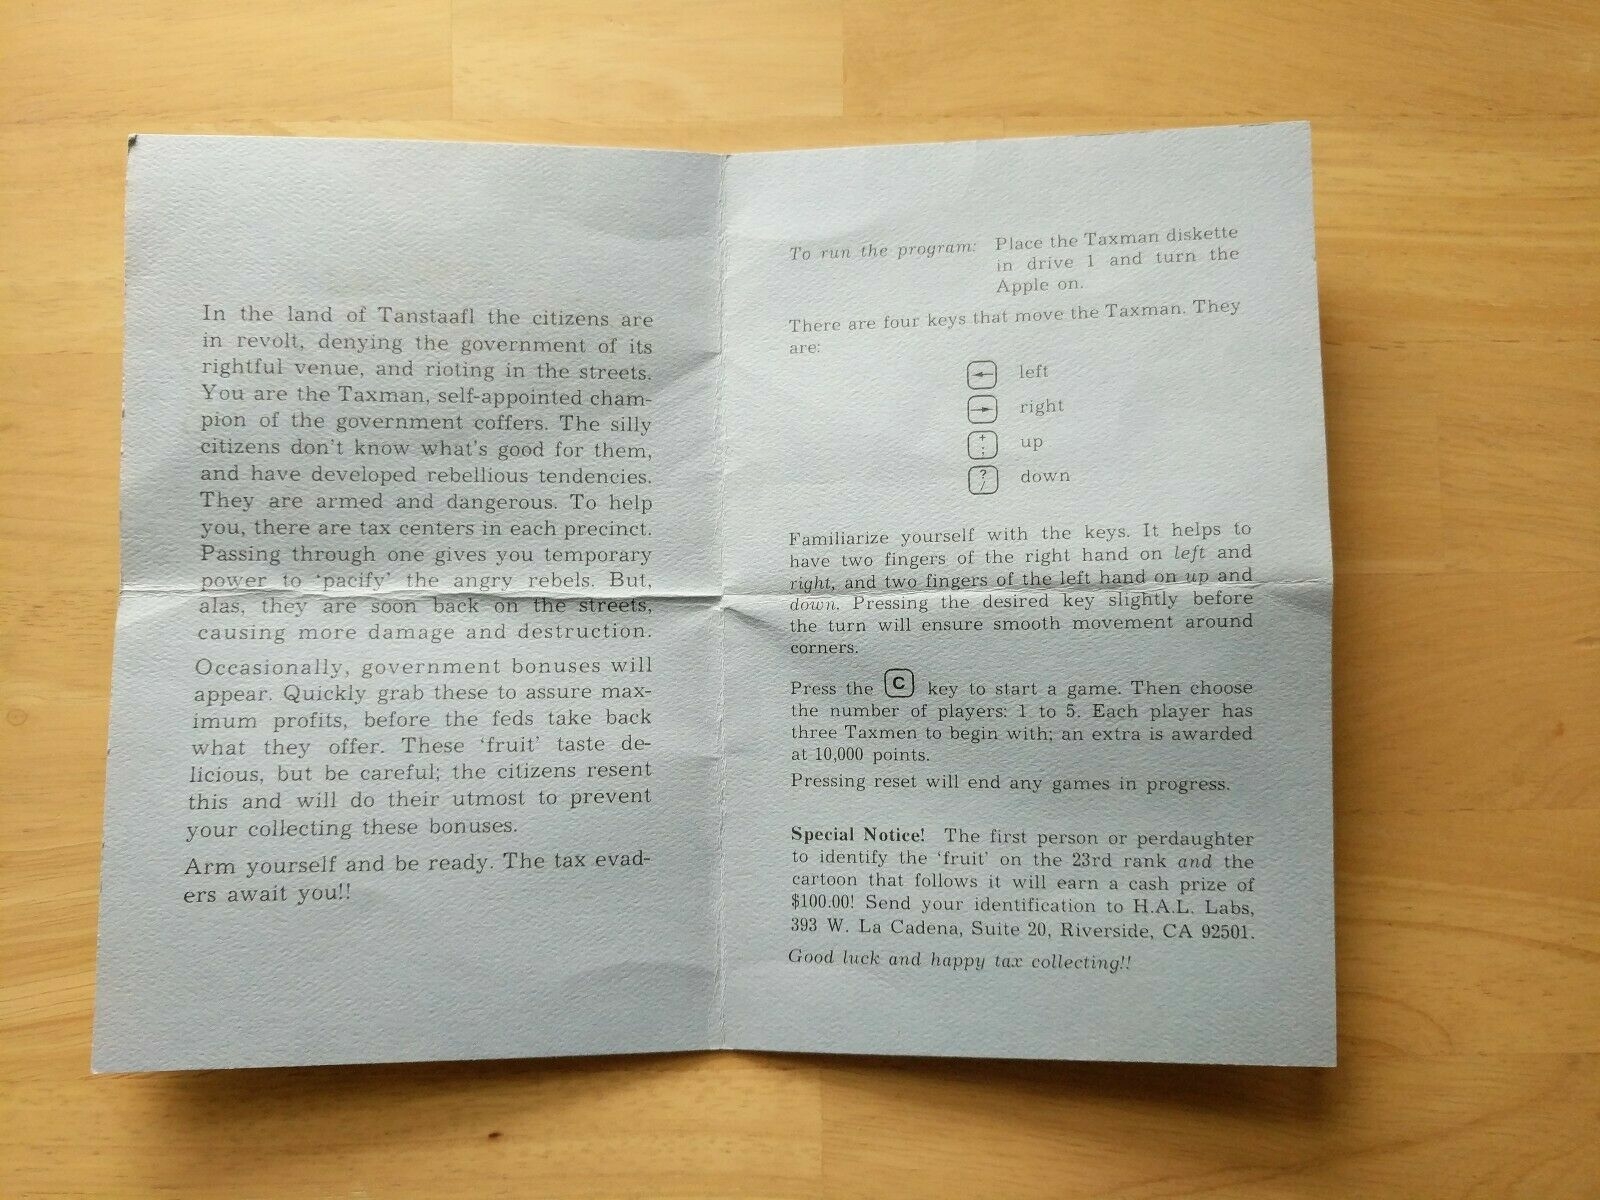 In the land of Tanstaafl the citizens are
in revolt, denying the government of its
rightful venue, and rioting in the streets.
You are the Taxman, self-appointed cham-
pion of the government coffers. The silly
citizens don't know what's good for them,
and have developed rebellious tendencies.
They are armed and dangerous. To help
you, there are tax centers in each precinct.
Passing through one gives you temporary
power to 'pacify' the angry rebels. But,
alas, they are soon back on the streets,
causing more damage and destruction.
Occasionally, government bonuses will
appear. Quickly grab these to assure max-
imum profits, before the feds take back
what they offer. These 'fruit' taste de-
licious, but be careful; the citizens resent
this and will do their utmost to prevent
your collecting these bonuses.
Arm yourself and be ready. The tax evad-
ers await you!!
To run the program: Place the Taxman diskette
in drive 1 and turn the
Apple on.
There are four keys that move the Taxman. They
are:
← left
→ right
+ ; up
? / down
Familiarize yourself with the keys. It helps to
have two fingers of the right hand on left and
right, and two fingers of the left hand on up and
down. Pressing the desired key slightly before
the turn will ensure smooth movement around
corners.
Press the C key to start a game. Then choose
the number of players: 1 to 5. Each player has
three Taxmen to begin with; an extra is awarded
at 10,000 points.
Pressing reset will end any games in progress.
Special Notice! The first person or perdaughter
to identify the 'fruit' on the 23rd rank and the
cartoon that follows it will earn a cash prize of
$100.00! Send your identification to H.A.L. Labs,
393 W. La Cadena, Suite 20, Riverside, CA 92501.
Good luck and happy tax collecting!!